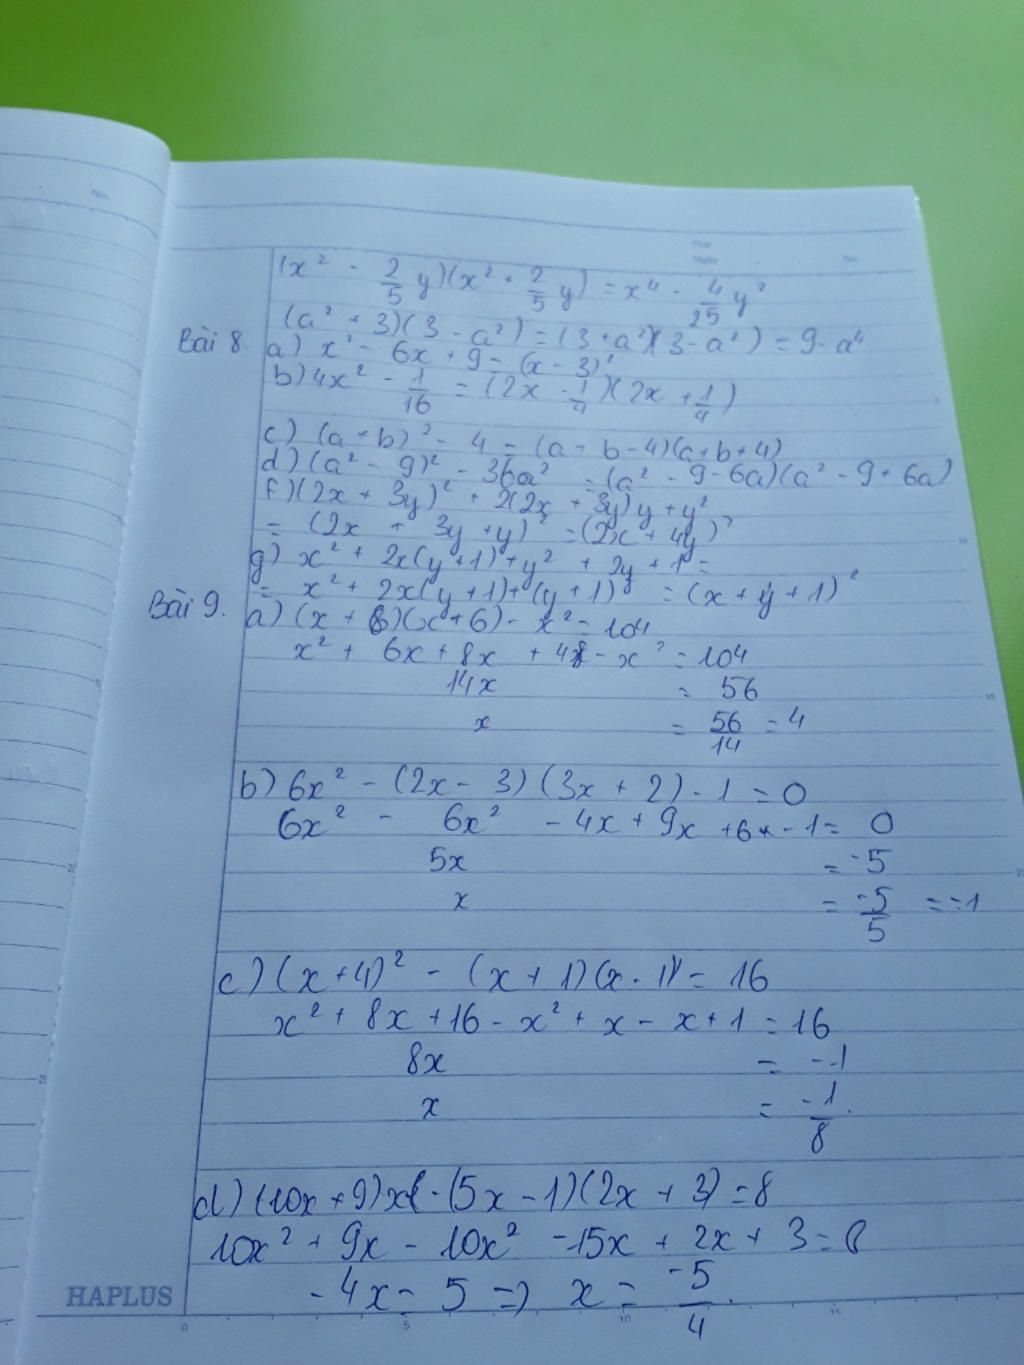 (x² - 2/5 y)(x² + 2/5 y) = x⁴ - 4/25 y²
(a² + 3)(3 - a²) = (3 + a²)(3 - a²) = 9 - a⁴
Bài 8. a) x² - 6x + 9 = (x - 3)²
b) 4x² - 1/16 = (2x - 1/4)(2x + 1/4)
c) (a + b)² - 4 = (a + b - 4)(a + b + 4)
d) (a² - 9)² - 36a² = (a² - 9 - 6a)(a² - 9 + 6a)
f) (2x + 3y)² + 2(2x + 3y)y + y²
= (2x + 3y + y)² = (2x + 4y)²
g) x² + 2x(y + 1) + y² + 2y + 1 =
= x² + 2x(y + 1) + (y + 1)² = (x + y + 1)²
Bài 9. a) (x + 8)(x + 6) - x² = 104
x² + 6x + 8x + 48 - x² = 104
14x = 56
x = 56/14 = 4
b) 6x² - (2x - 3)(3x + 2) - 1 = 0
6x² - 6x² - 4x + 9x + 6 - 1 = 0
5x = -5
x = -5/5 = -1
c) (x + 4)² - (x + 1)(x - 1) = 16
x² + 8x + 16 - x² + x - x + 1 = 16
8x = -1
x = -1/8
d) (10x + 9)x - (5x - 1)(2x + 3) = 8
10x² + 9x - 10x² - 15x + 2x + 3 = 8
-4x = 5 => x = -5/4
HAPLUS